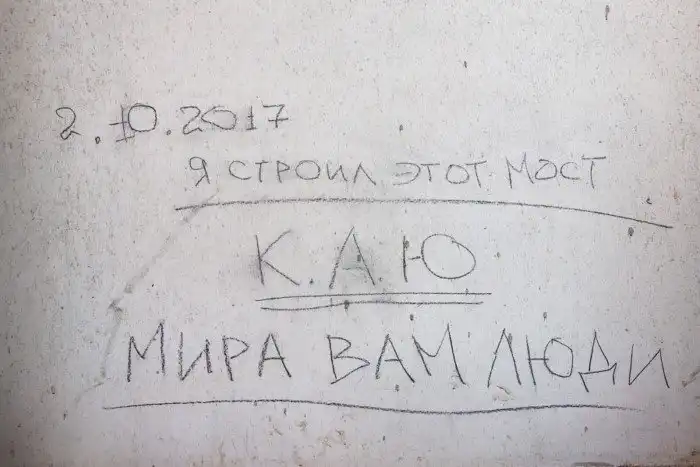 2.10.2017
Я СТРОИЛ ЭТОТ МОСТ
К.А.Ю
МИРА ВАМ ЛЮДИ